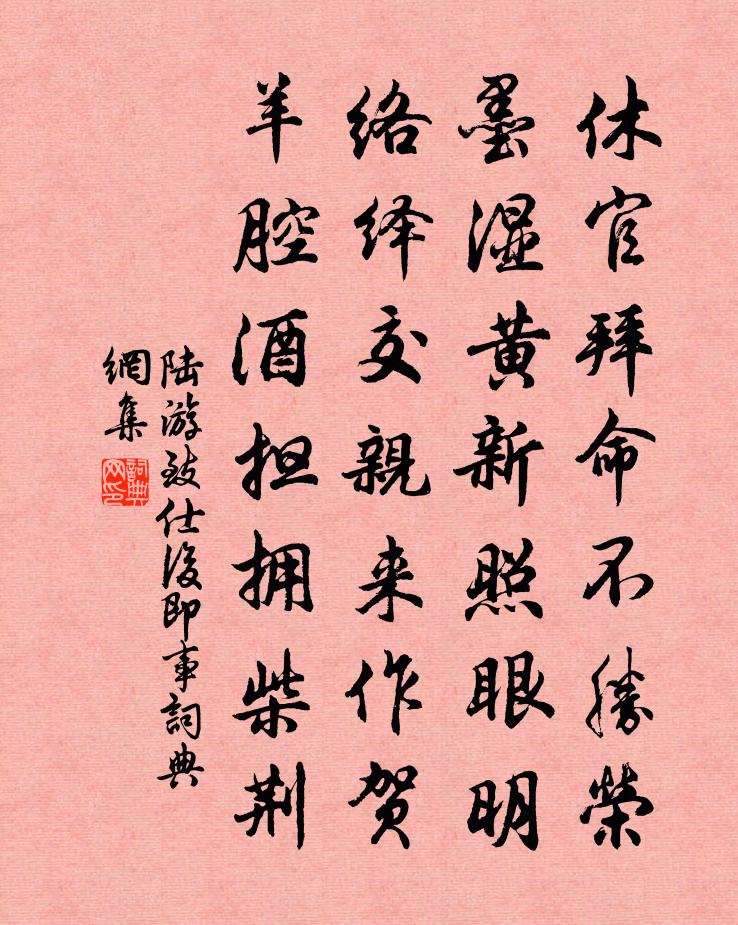 休官拜命不勝榮
墨湿黄新照眼明
络绎交親来作贺
羊腔酒担拥柴荆
陆游致仕後即事詞典
網集
詞典
网印